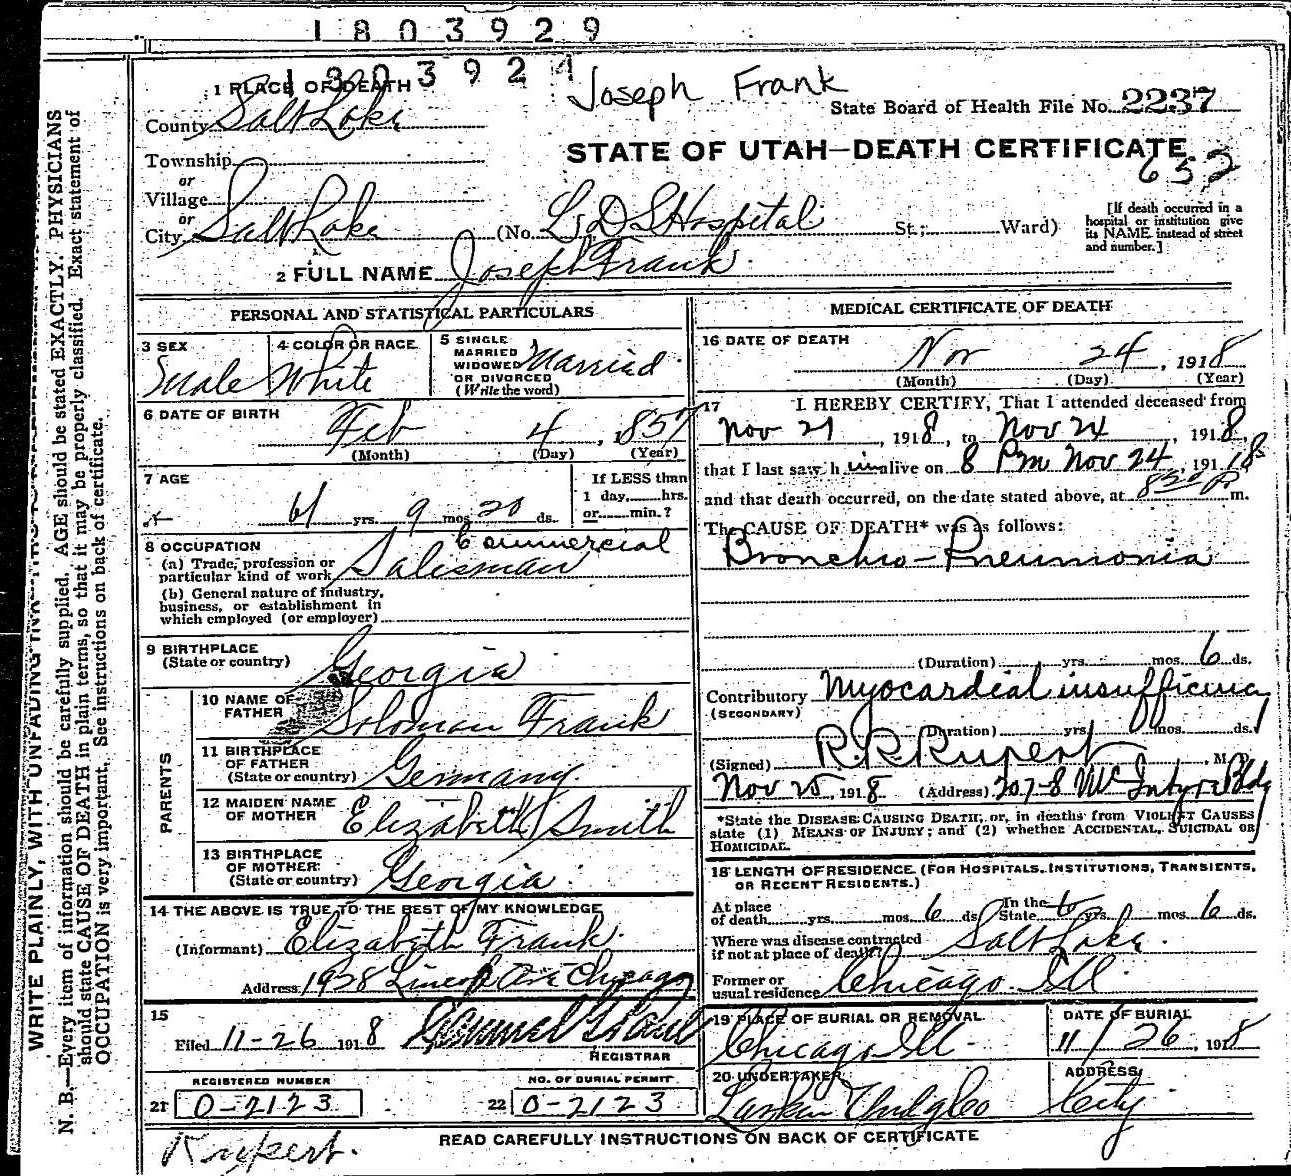 1803929
1803929
Joseph Frank
1 PLACE OF DEATH
State Board of Health File No. 2237
County Salt Lake
STATE OF UTAH—DEATH CERTIFICATE
652
Township
or
Village
or
City Salt Lake (No. L D S Hospital St.; Ward)
[If death occurred in a
hospital or institution give
its NAME instead of street
and number.]
2 FULL NAME Joseph Frank
PERSONAL AND STATISTICAL PARTICULARS
3 SEX
Male
4 COLOR OR RACE
White
5 SINGLE
MARRIED
WIDOWED
OR DIVORCED
(Write the word)
Married
6 DATE OF BIRTH
Feb 4, 1857
(Month) (Day) (Year)
7 AGE
61 yrs. 9 mos. 20 ds.
If LESS than
1 day, hrs.
or min.?
8 OCCUPATION
(a) Trade, profession or
particular kind of work
Commercial
Salesman
(b) General nature of industry,
business, or establishment in
which employed (or employer)
9 BIRTHPLACE
(State or country) Georgia
PARENTS
10 NAME OF
FATHER Soloman Frank
11 BIRTHPLACE
OF FATHER
(State or country) Germany.
12 MAIDEN NAME
OF MOTHER Elizabeth Smith
13 BIRTHPLACE
OF MOTHER
(State or country) Georgia
14 THE ABOVE IS TRUE TO THE BEST OF MY KNOWLEDGE
(Informant) Elizabeth Frank.
Address 1928 Lincoln Ave Chicago
15
Filed 11-26 1918
REGISTRAR
REGISTERED NUMBER
21 0-2123
NO. OF BURIAL PERMIT
22 0-2123
MEDICAL CERTIFICATE OF DEATH
16 DATE OF DEATH
Nov 24, 1918
(Month) (Day) (Year)
17 I HEREBY CERTIFY, That I attended deceased from
Nov 21, 1918, to Nov 24, 1918,
that I last saw him alive on 8 Pm Nov 24, 1918
and that death occurred, on the date stated above, at 8 20 P m.
The CAUSE OF DEATH* was as follows:
Broncho-Pneumonia
(Duration) yrs. mos. 6 ds.
Contributory Myocardial insufficiency
(SECONDARY)
(Duration) yrs. mos. ds. 1
(Signed) R. R. Rupert, M.
Nov 25, 1918 (Address) 207-8 McIntyre Bldg
*State the DISEASE CAUSING DEATH, or, in deaths from VIOLENT CAUSES
state (1) MEANS OF INJURY; and (2) whether ACCIDENTAL, SUICIDAL OR
HOMICIDAL.
18 LENGTH OF RESIDENCE (FOR HOSPITALS, INSTITUTIONS, TRANSIENTS,
OR RECENT RESIDENTS.)
At place
of death yrs. mos. 6 ds.
In the
State yrs. mos. 6 ds.
Where was disease contracted
if not at place of death? Salt Lake.
Former or
usual residence Chicago Ill
19 PLACE OF BURIAL OR REMOVAL
Chicago Ill.
DATE OF BURIAL
11/26, 1918
20 UNDERTAKER
Larkin Undg Co
ADDRESS
City
READ CAREFULLY INSTRUCTIONS ON BACK OF CERTIFICATE
Rupert.
N. B.—Every item of information should be carefully supplied. AGE should be stated EXACTLY. PHYSICIANS
should state CAUSE OF DEATH in plain terms, so that it may be properly classified. Exact statement of
OCCUPATION is very important. See instructions on back of certificate.
WRITE PLAINLY, WITH UNFADING INK